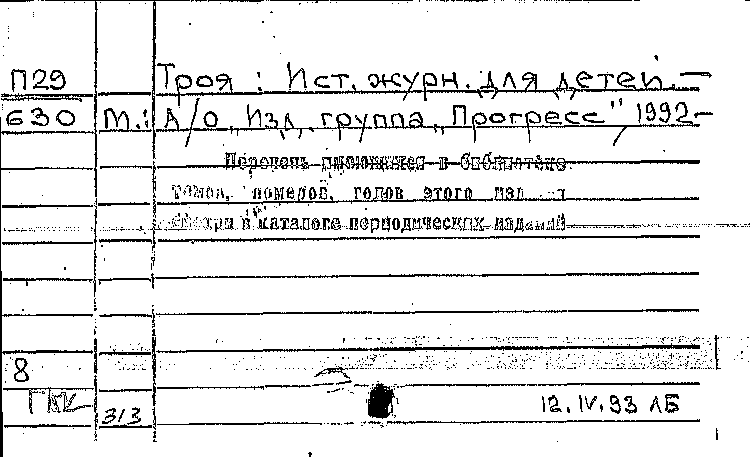 П29 Троя : Ист. журн. для детей. —
630 М.: А/О „Изд. группа „Прогресс", 1992—
Перечень имеющихся в библиотеке
томов, номеров, годов этого изд
смотри в каталоге периодических изданий
8
313 12.IV.93 ЛБ